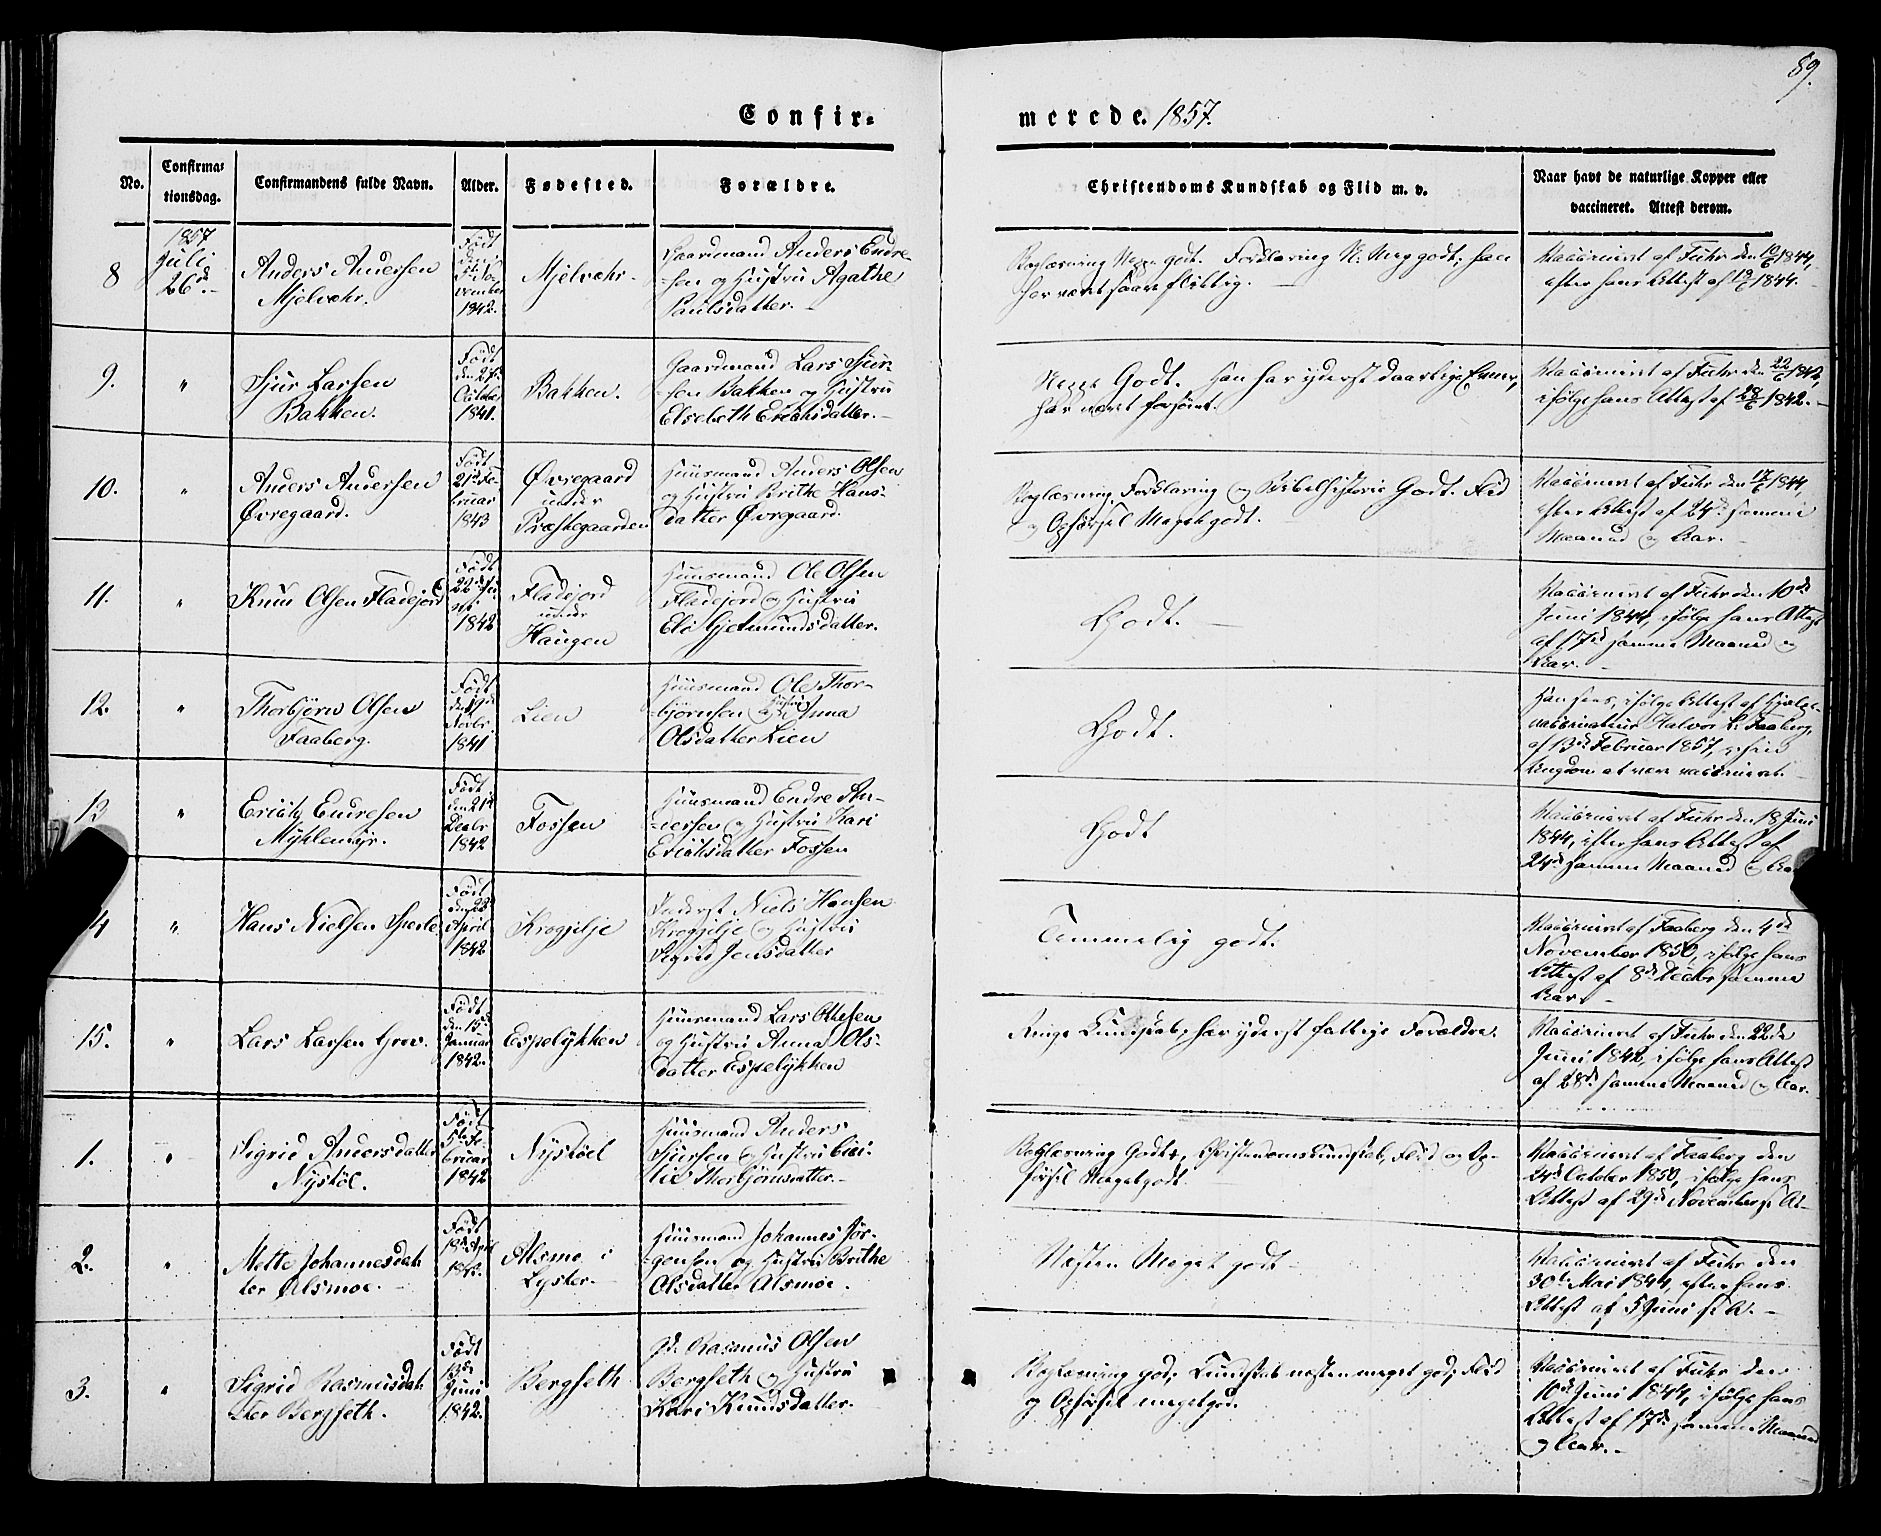 89.
Confir=
merede. 1857.
No.
Confirma=
tionsdag.
Confirmandens fulde Navn.
Alder.
Fødested.
Forældre.
Christendoms Kundskab og Flid m. v.
Naar havt de naturlige Kopper eller
vaccineret. Attest derom.
8
1857
Juli
26de.
Anders Andersen
Mjelvæhr.
Født
vember
1842.
Mjelvæhr.
Gaardmand Anders Endre-
-sen og Hustru Agathe
Paulsdatter.
Boglæsning Neppe godt. Forklaring N. Meget godt; han
har været saare flittig.
Vaccineret af Fuhr den 10/6 1844,
efter hans Attest af 19/6 1844.
9.
"
Sjur Larsen
Bakken.
Født
den 27de
October
1841.
Bakken.
Gaardmand Lars Sjur-
-sen Bakken og Hustru
Elsebeth Erichsdatter.
Neppe Godt. Han har yderst daarlige Evner,
har været forsømt.
Vaccineret af Fuhr den 22/6 1842,
ifølge hans Attest af 28/6 1842.
10.
"
Anders Andersen
Øvregaard.
Født
21de Fe-
bruar
1843
Øvregaard
under
Præstegaarden
Huusmand Anders Olsen
og Hustru Brithe Hans-
datter Øvregaard.
Boglæsning, Forklaring og Bibelhistorie Godt. Flid
og Opførsel Meget godt.
Vaccineret af Fuhr den 17/6 1844,
efter Attest af 24de samme
Maaned og Aar.
11.
"
Knud Olsen Fladejord
Født
22de
1842
Fladejord
under
Haugen
Huusmand Ole Olsen
Fladejord og Hustru
Eli Gjetmundsdatter.
Godt.
Vaccineret af Fuhr den 10de
Juni 1844, ifølge hans Attest
af 17de samme Maaned og
Aar.
12.
"
Thorbjørn Olsen
Faaberg.
Født
den 19de
Novbr
1841
Lien
Huusmand Ole Thor-
-bjørnsen og Hustru Anna
Olsdatter Lien
Godt.
Han sees, ifølge Attest af Hjælpe-
vaccinateur Halvor L. Faaberg,
af 13de Februar 1857, i sin
Ungdom at være vaccineret.
13
"
Erich Endresen
Myklemyr.
Født
den 21de
Decbr
1842
Fossen
Huusmand Endre An-
-dersen og Hustru Kari
Erichsdatter Fossen
Godt
Vaccineret af Fuhr den 18 Juni
1844, efter hans Attest af
24de samme Maaned og Aar
4
"
Hans Nielsen Sperle
Født
den 22de
April
1842
Kroggilje
Inderst Niels Hansen
Kroggilje og Hustru
Sigrid Jensdatter
Temmelig godt.
Vaccineret af Faaberg den 4de
November 1850, ifølge hans
Attest af 8de Decbr samme
Aar.
15.
"
Lars Larsen Grov.
Født
den 15de
Januar
1842.
Espelykken
Huusmand Lars Ottesen
og Hustru Anna Ols-
datter Espelykken
Ringe Kundskab; har yderst fattige Forældre.
Vaccineret af Fuhr den 22de
Juni 1842, ifølge hans Attest
af 28de samme Maaned og Aar.
1.
"
Sigrid Andersdatter
Nystøl.
Født
5te Fe-
bruar
1842
Nystøel
Huusmand Anders
Sjursen og Hustru Ceci-
lie Thorbjørnsdatter.
Boglæsning Godt, Christendomskundskab, Flid og Op-
førsel Megetgodt.
Vaccineret af Faaberg den
24de October 1850, ifølge hans
Attest af 29de November s. A.
2.
"
Mette Johannesdat-
ter Alsmoe.
Født
18de April
1842.
Alsmo i
Lyster.
Huusmand Johannes Jør-
-gensen og Hustru Brithe
Olsdatter Alsmoe.
Næsten Meget godt
Vaccineret af Fuhr den
30te Mai 1844, efter hans
Attest af 5 Juni s. A.
3.
"
Sigrid Rasmusdat-
ter Bergseth.
Født
13de
Juni
1842.
Bergseth
Gd. Rasmus Olsen
Bergseth og Hustru
Kari Knudsdatter.
Boglæsning god; Kundskab næsten meget god; Flid
og Opførsel meget god.
Vaccineret af Fuhr den
10de Juni 1844, ifølge hans
Attest af 17de samme Maaned
og Aar.